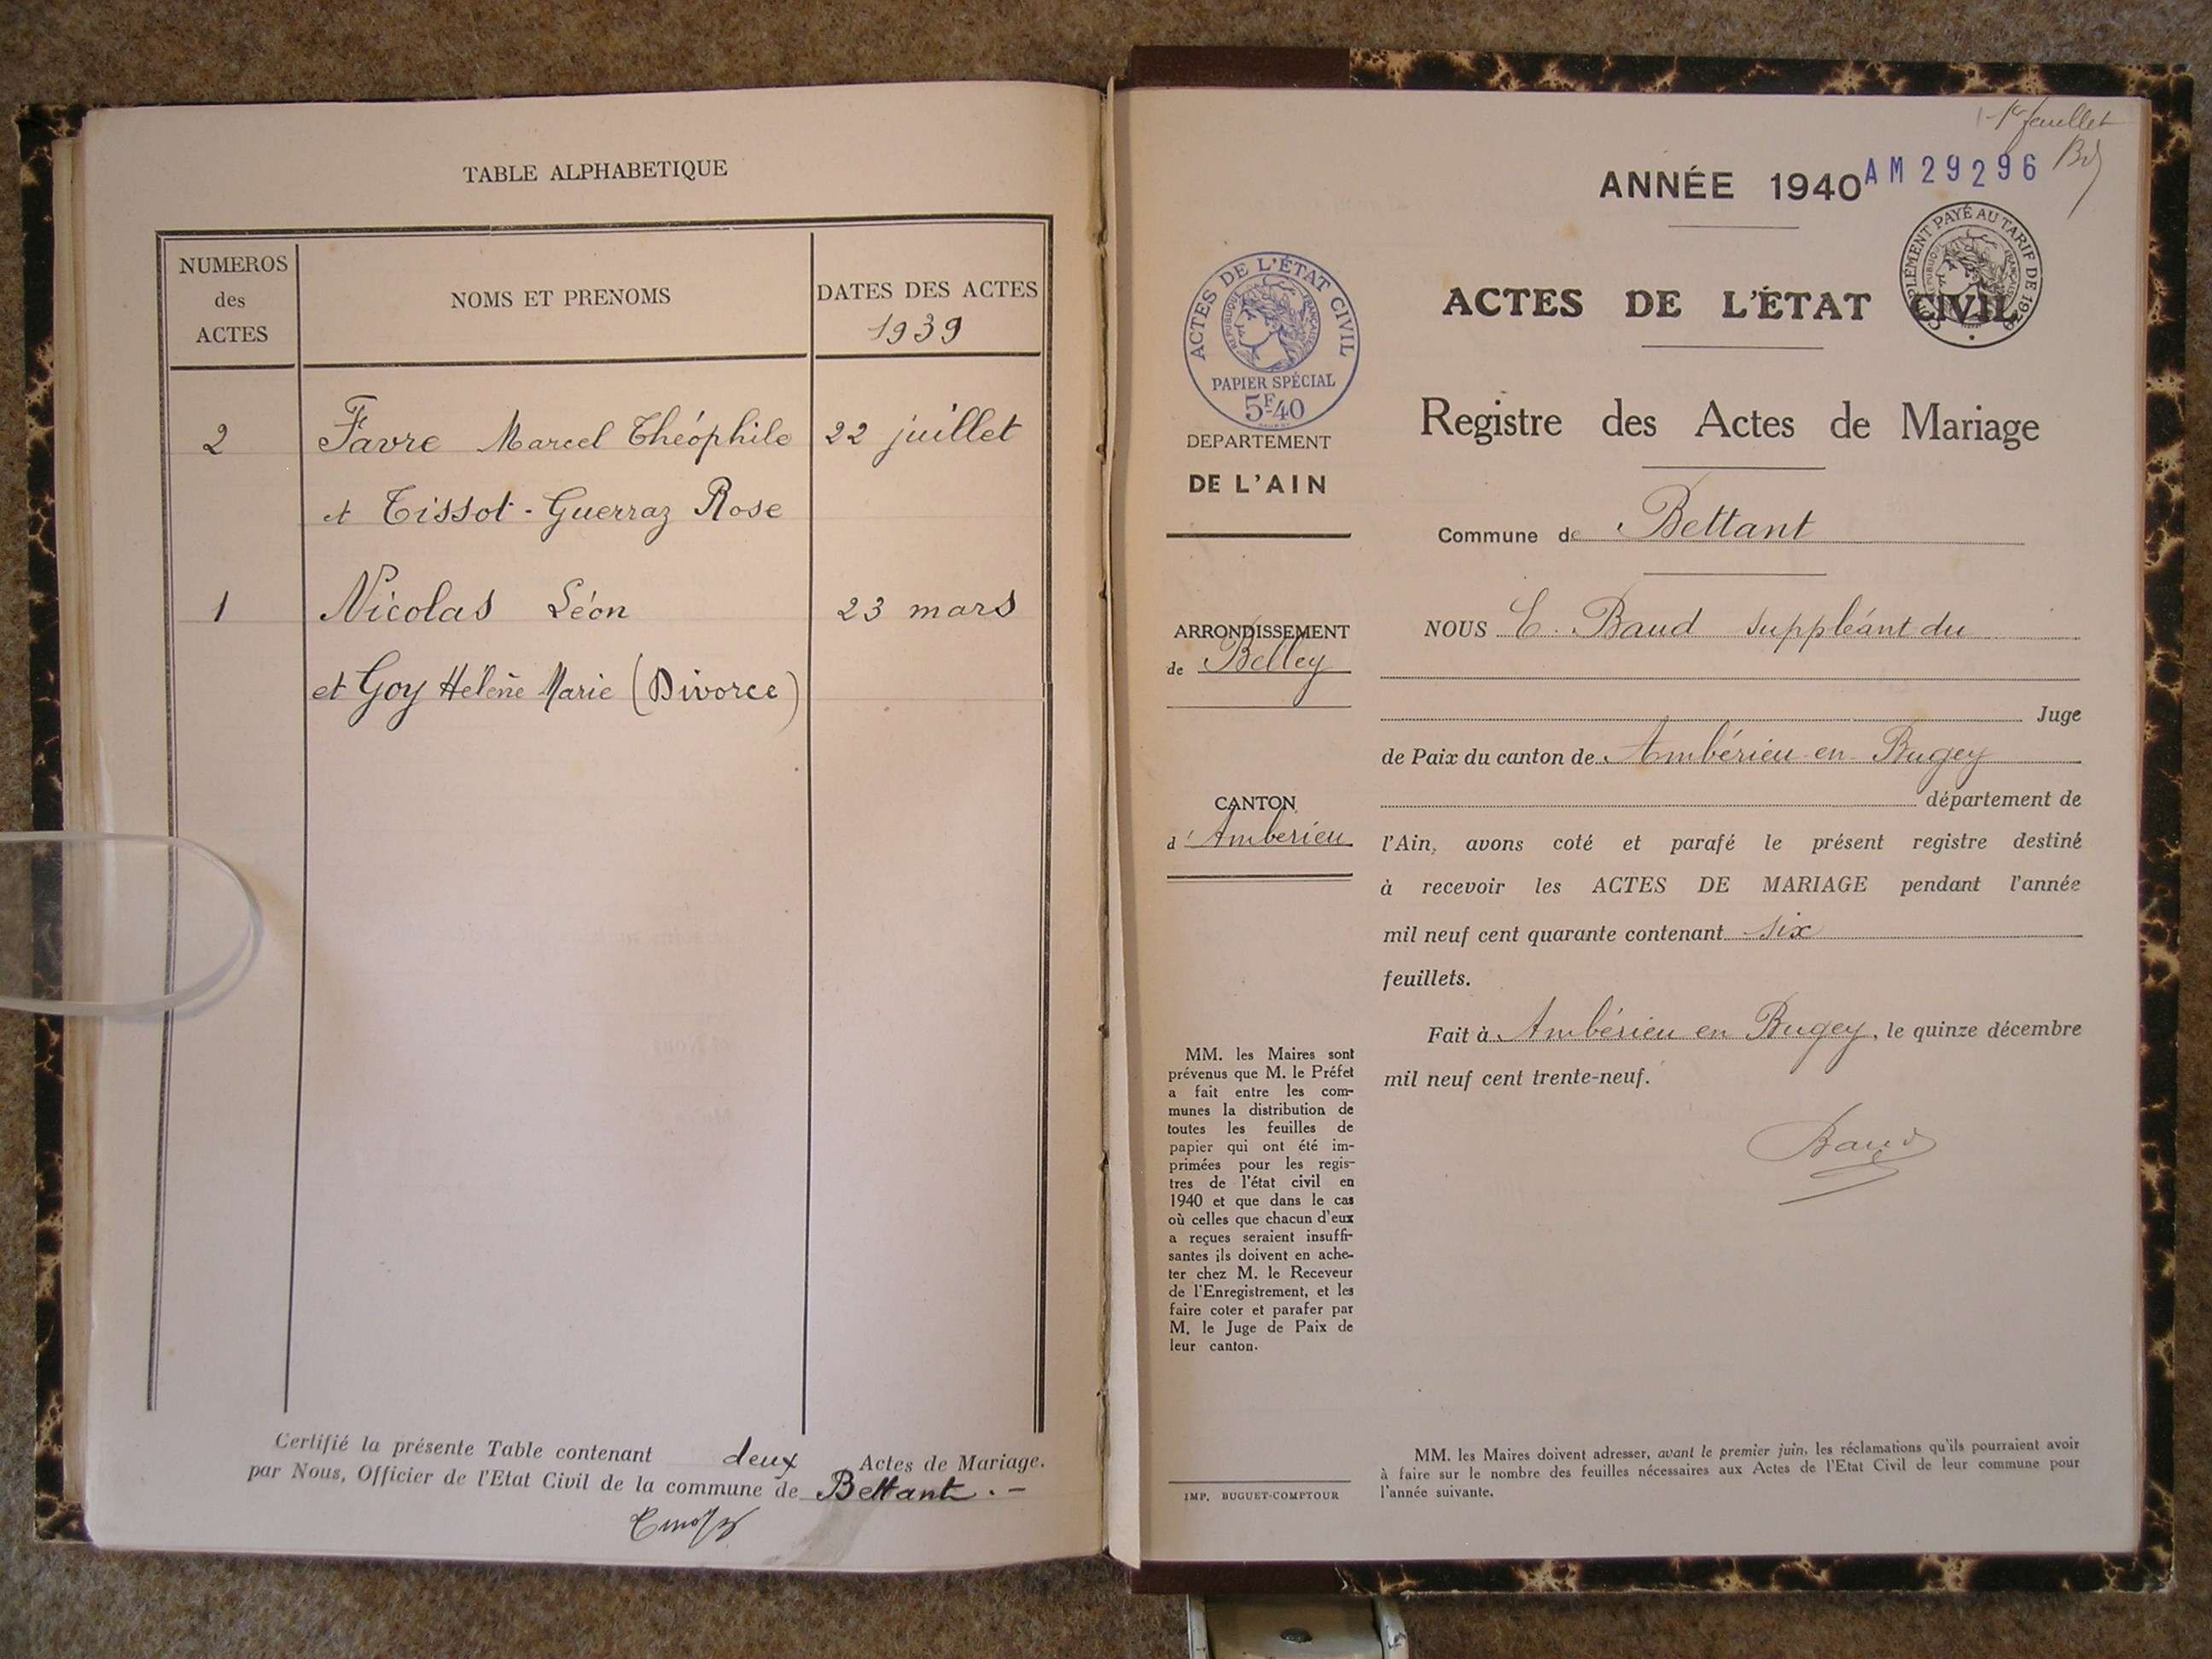 TABLE ALPHABETIQUE
NUMEROS
des
ACTES
NOMS ET PRENOMS
DATES DES ACTES
1939
2 Favre Marcel Théophile 22 juillet
et Tissot-Guerraz Rose
1 Nicolas Léon 23 mars
et Goy Hélène Marie (Divorce)
Certifié la présente Table contenant deux Actes de Mariage.
par Nous, Officier de l'Etat Civil de la commune de Bettant.-
1er feuillet
ANNÉE 1940
AM 29296
COMPLÉMENT PAYÉ AU TARIF DE 1939
RÉPUBLIQUE FRANÇAISE
ACTES DE L'ÉTAT CIVIL
Registre des Actes de Mariage
Commune de Bettant
NOUS E. Baud suppléant du
Juge
de Paix du canton de Ambérieu-en-Bugey
département de
l'Ain, avons coté et parafé le présent registre destiné
à recevoir les ACTES DE MARIAGE pendant l'année
mil neuf cent quarante contenant six
feuillets.
Fait à Ambérieu en Bugey, le quinze décembre
mil neuf cent trente-neuf.
Baud
ACTES DE L'ÉTAT CIVIL
RÉPUBLIQUE FRANÇAISE
PAPIER SPÉCIAL
5F-40
DEPARTEMENT
DE L'AIN
ARRONDISSEMENT
de Belley
CANTON
d'Ambérieu
MM. les Maires sont
prévenus que M. le Préfet
a fait entre les com-
munes la distribution de
toutes les feuilles de
papier qui ont été im-
primées pour les regis-
tres de l'état civil en
1940 et que dans le cas
où celles que chacun d'eux
a reçues seraient insuffi-
santes ils doivent en ache-
ter chez M. le Receveur
de l'Enregistrement, et les
faire coter et parafer par
M. le Juge de Paix de
leur canton.
IMP. BUGUET-COMPTOUR
MM. les Maires doivent adresser, avant le premier juin, les réclamations qu'ils pourraient avoir
à faire sur le nombre des feuilles nécessaires aux Actes de l'Etat Civil de leur commune pour
l'année suivante.